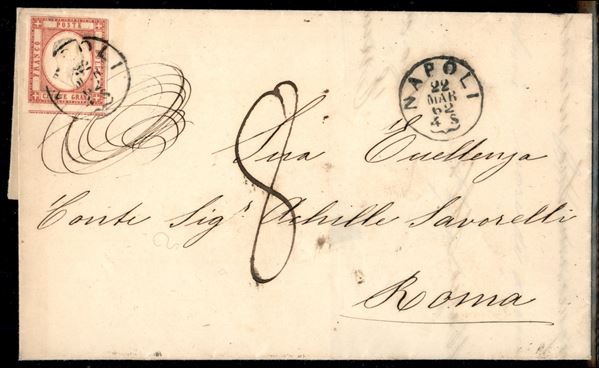 POSTE
FRANCO
CINQUE GRANA
NAPOLI
NAPOLI
22
MAR
62
4 S
8
Sua Eccellenza
Conte Sigr Achille Savorelli
Roma